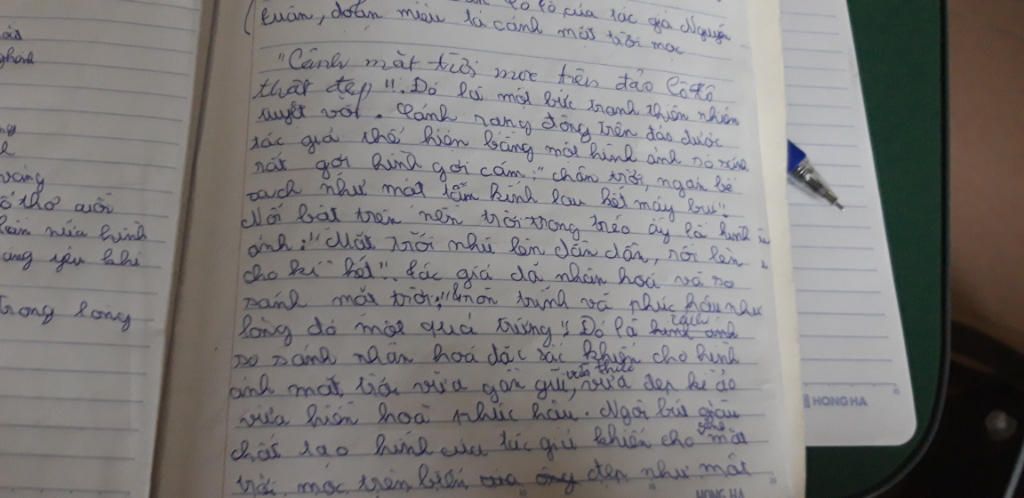 Cô Tô của tác giả Nguyễn
(Tuân, đoạn miêu tả cảnh mặt trời mọc
"Cảnh mặt trời mọc trên đảo Cô Tô
thật đẹp". Đó là một bức tranh thiên nhiên
tuyệt vời. Cảnh rạng đông trên đảo được
tác giả thể hiện bằng một hình ảnh so sánh
rất gợi hình gợi cảm: "chân trời, ngấn bể
sạch như một tấm kính lau hết mây bụi".
Nổi bật trên nền trời trong trẻo ấy là hình
ảnh: "Mặt trời nhú lên dần dần, rồi lên
cho kì hết". Tác giả đã nhân hoá và so
sánh mặt trời: "tròn trĩnh và phúc hậu như
lòng đỏ một quả trứng". Đó là cách
so sánh nhân hoá đặc sắc khiến cho hình
ảnh mặt trời vừa gần gũi, vừa đẹp kì ảo
vừa hiền hoà phúc hậu. Ngòi bút giàu
chất tạo hình của tác giả khiến cho mặt
trời mọc trên biển đẹp như một
vàng
trong lòng
HONG HA
HONG HA